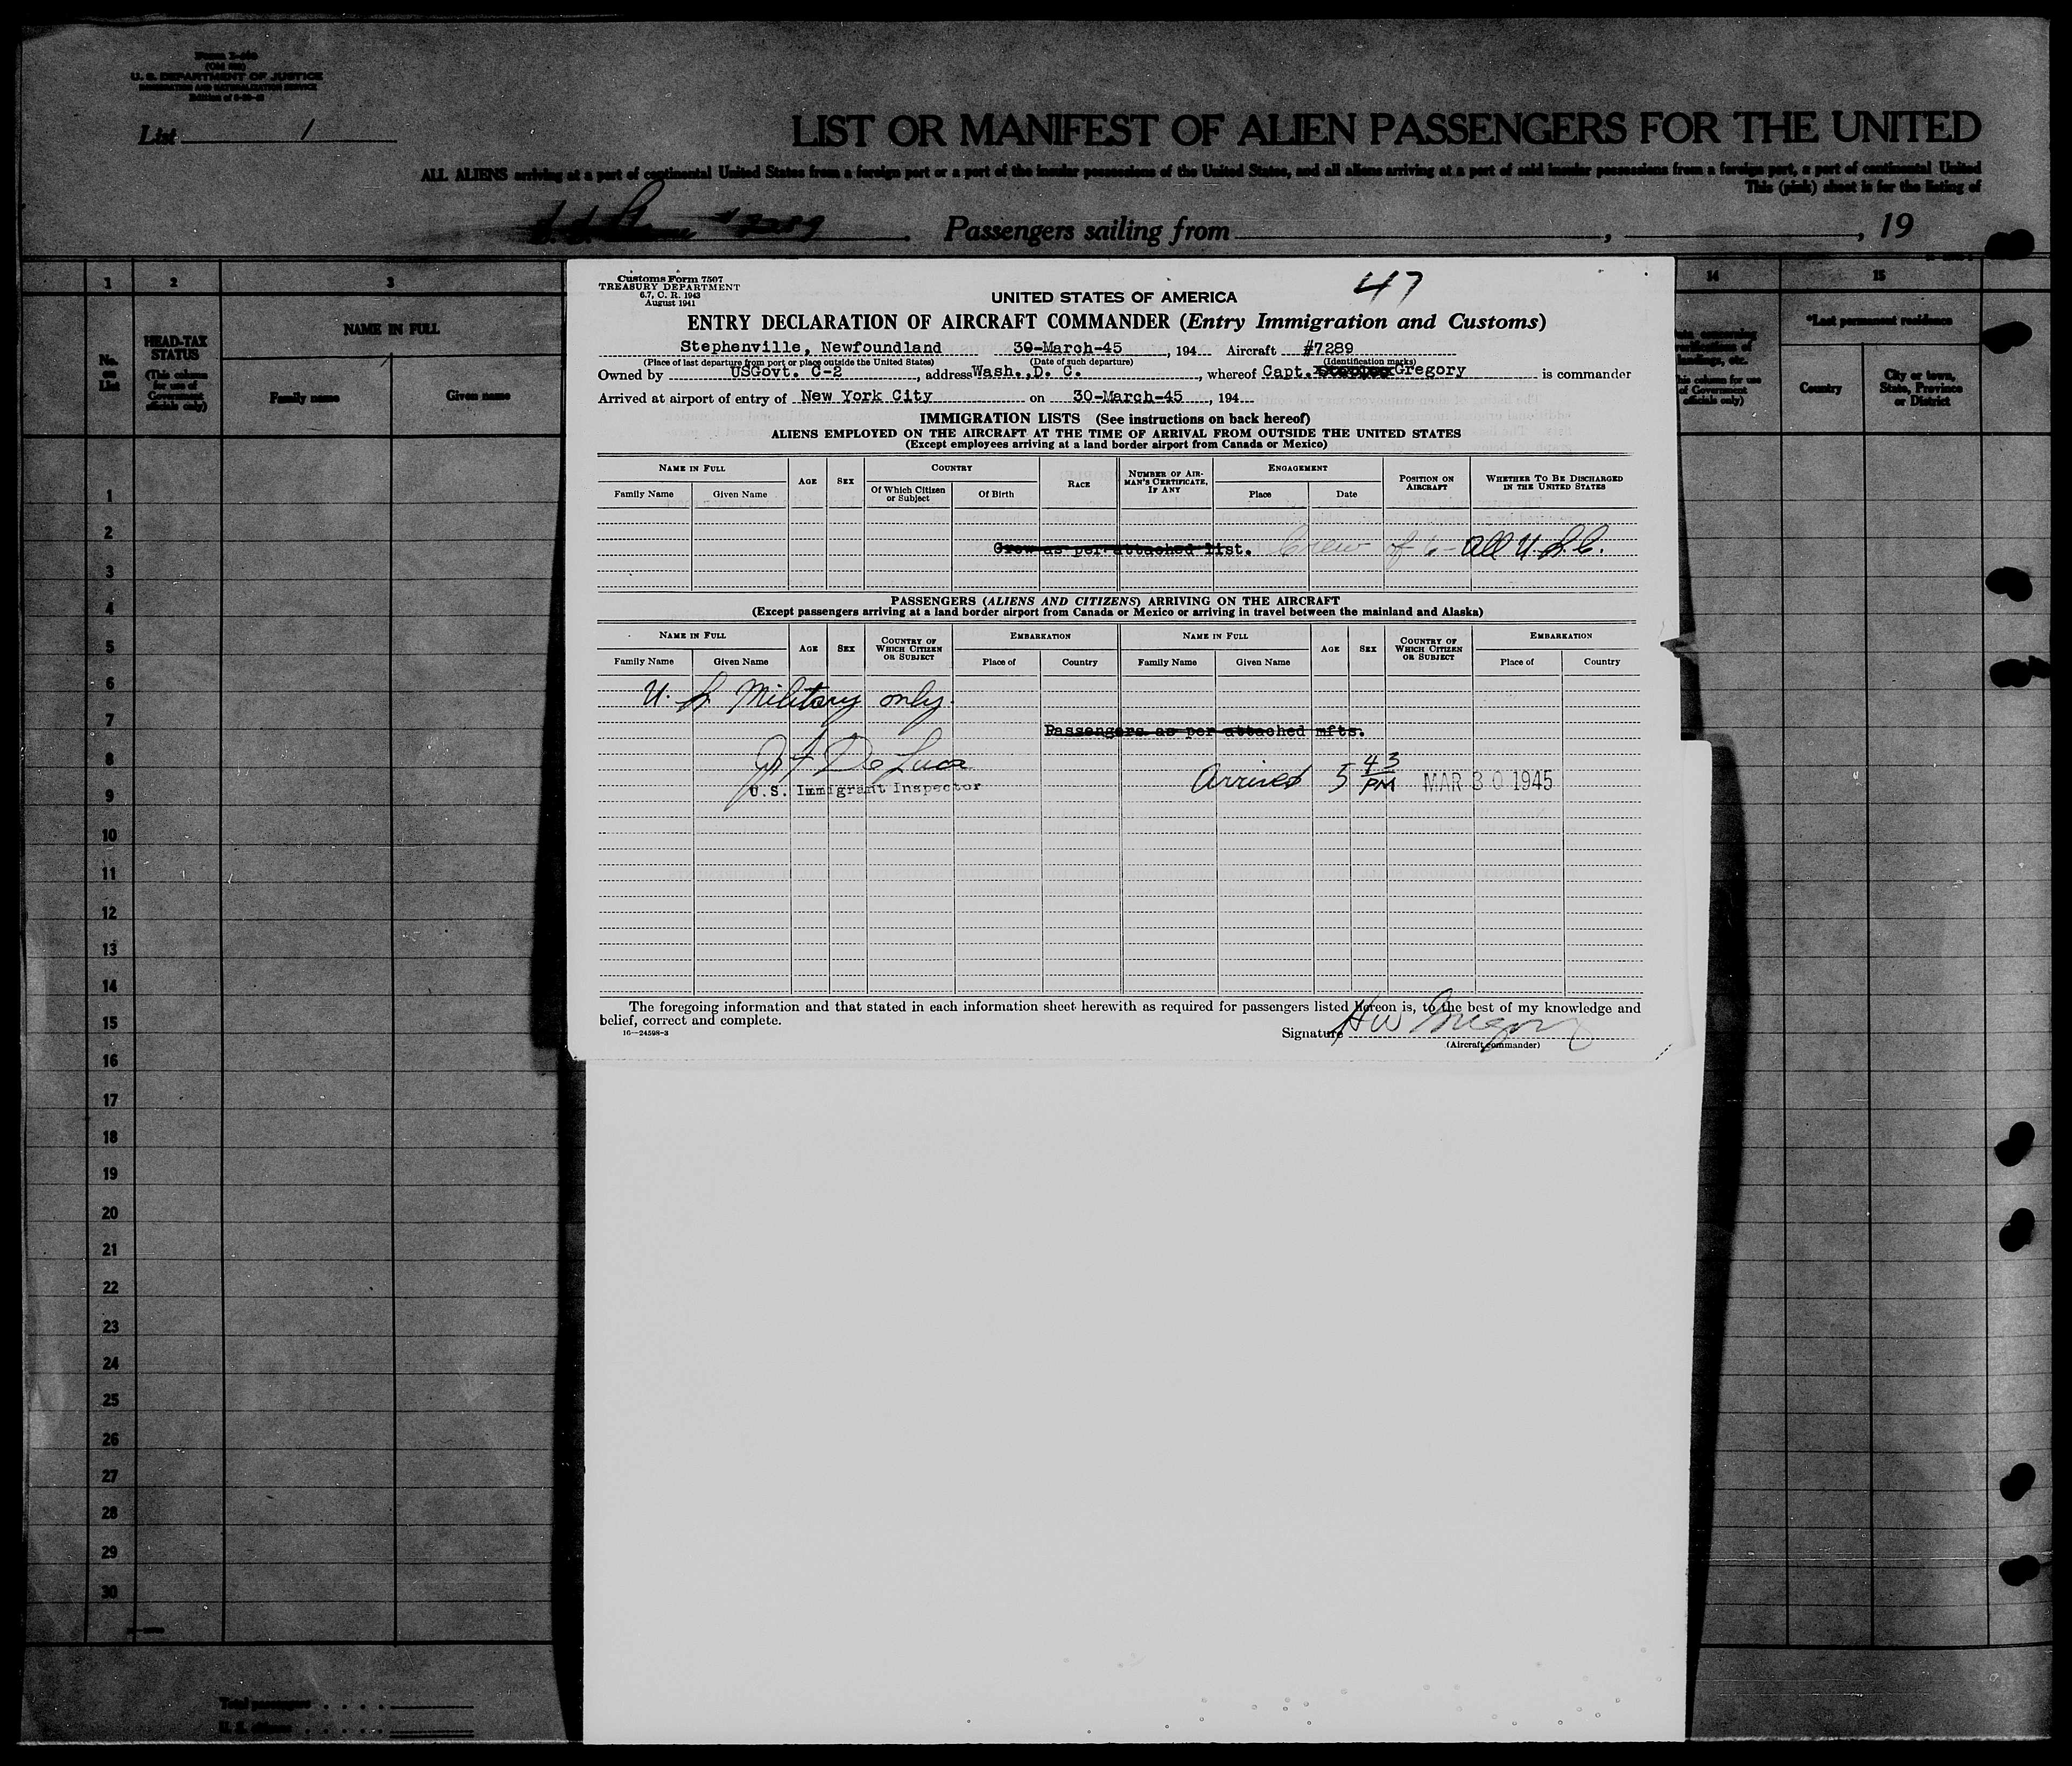 U. S. DEPARTMENT OF JUSTICE
IMMIGRATION AND NATURALIZATION SERVICE
List 1
LIST OR MANIFEST OF ALIEN PASSENGERS FOR THE UNITED
ALL ALIENS arriving at a port of continental United States from a foreign port or a port of the insular possessions of the United States, and all aliens arriving at a port of said insular possessions from a foreign port, a port of continental United
This (pink) sheet is for the listing of
#7289 Passengers sailing from , , 19
1 2 3 14 15
No. on List
HEAD-TAX STATUS
(This column for use of Government officials only)
NAME IN FULL
Family name Given name
*Last permanent residence
Country
City or town, State, Province or District
Customs Form 7507
TREASURY DEPARTMENT
6.7, C. R. 1943
August 1941
47
UNITED STATES OF AMERICA
ENTRY DECLARATION OF AIRCRAFT COMMANDER (Entry Immigration and Customs)
Stephenville, Newfoundland 30-March-45, 194 Aircraft #7289
(Place of last departure from port or place outside the United States) (Date of such departure) (Identification marks)
Owned by USGovt. C-2, address Wash., D. C., whereof Capt. Gregory is commander
Arrived at airport of entry of New York City on 30-March-45, 194
IMMIGRATION LISTS (See instructions on back hereof)
ALIENS EMPLOYED ON THE AIRCRAFT AT THE TIME OF ARRIVAL FROM OUTSIDE THE UNITED STATES
(Except employees arriving at a land border airport from Canada or Mexico)
NAME IN FULL AGE SEX COUNTRY RACE NUMBER OF AIRMAN'S CERTIFICATE, IF ANY ENGAGEMENT POSITION ON AIRCRAFT WHETHER TO BE DISCHARGED IN THE UNITED STATES
Family Name Given Name Of Which Citizen or Subject Of Birth Place Date
Crew as per attached list. Crew of 6 - all U.S.C.
PASSENGERS (ALIENS AND CITIZENS) ARRIVING ON THE AIRCRAFT
(Except passengers arriving at a land border airport from Canada or Mexico or arriving in travel between the mainland and Alaska)
NAME IN FULL AGE SEX COUNTRY OF WHICH CITIZEN OR SUBJECT EMBARKATION NAME IN FULL AGE SEX COUNTRY OF WHICH CITIZEN OR SUBJECT EMBARKATION
Family Name Given Name Place of Country Family Name Given Name Place of Country
U. S Military only.
Passengers as per attached mfts.
De Luca
U.S. Immigrant Inspector
Arrived 5 43 PM MAR 30 1945
The foregoing information and that stated in each information sheet herewith as required for passengers listed hereon is, to the best of my knowledge and
belief, correct and complete.
16—24598-3
Signature HW Gregory
(Aircraft commander)
1
2
3
4
5
6
7
8
9
10
11
12
13
14
15
16
17
18
19
20
21
22
23
24
25
26
27
28
29
30
Total passengers
U. S. citizens